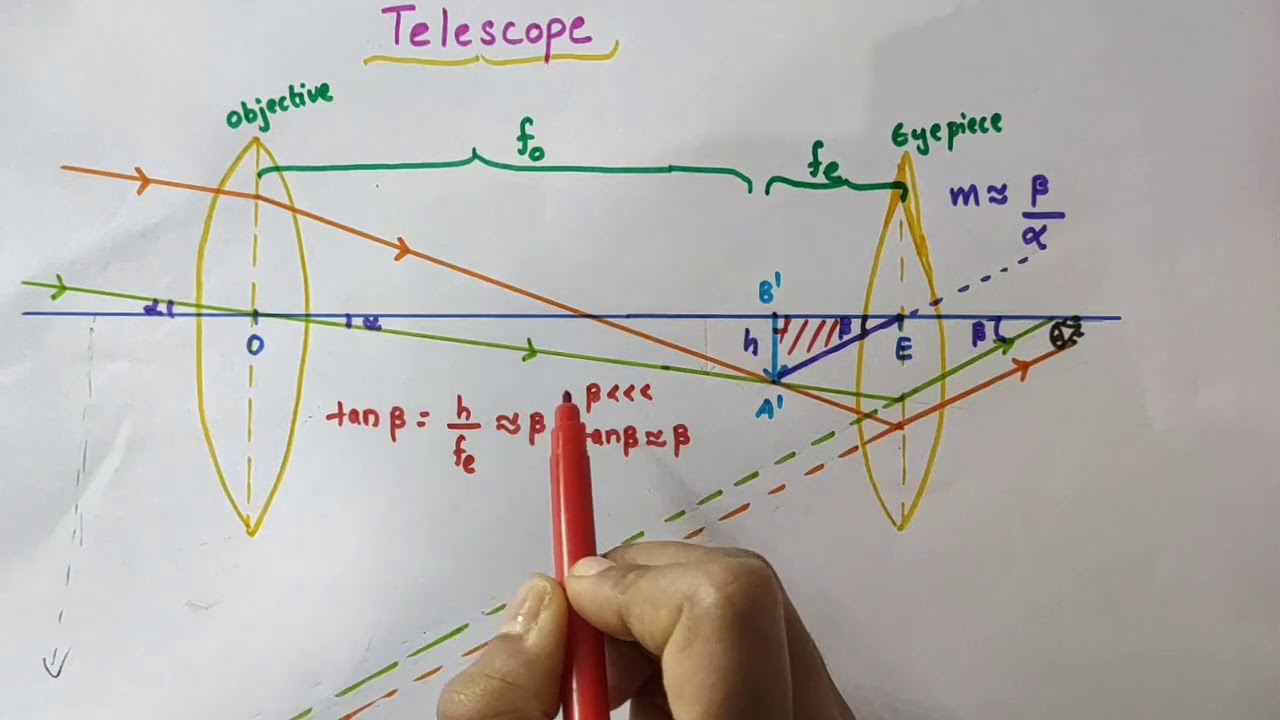 Telescope
Objective
fo
fe
Eyepiece
m ≈ β/α
α
α
O
B'
h
β
E
β
A'
tan β = h/fe ≈ β
β<<<
tanβ ≈ β